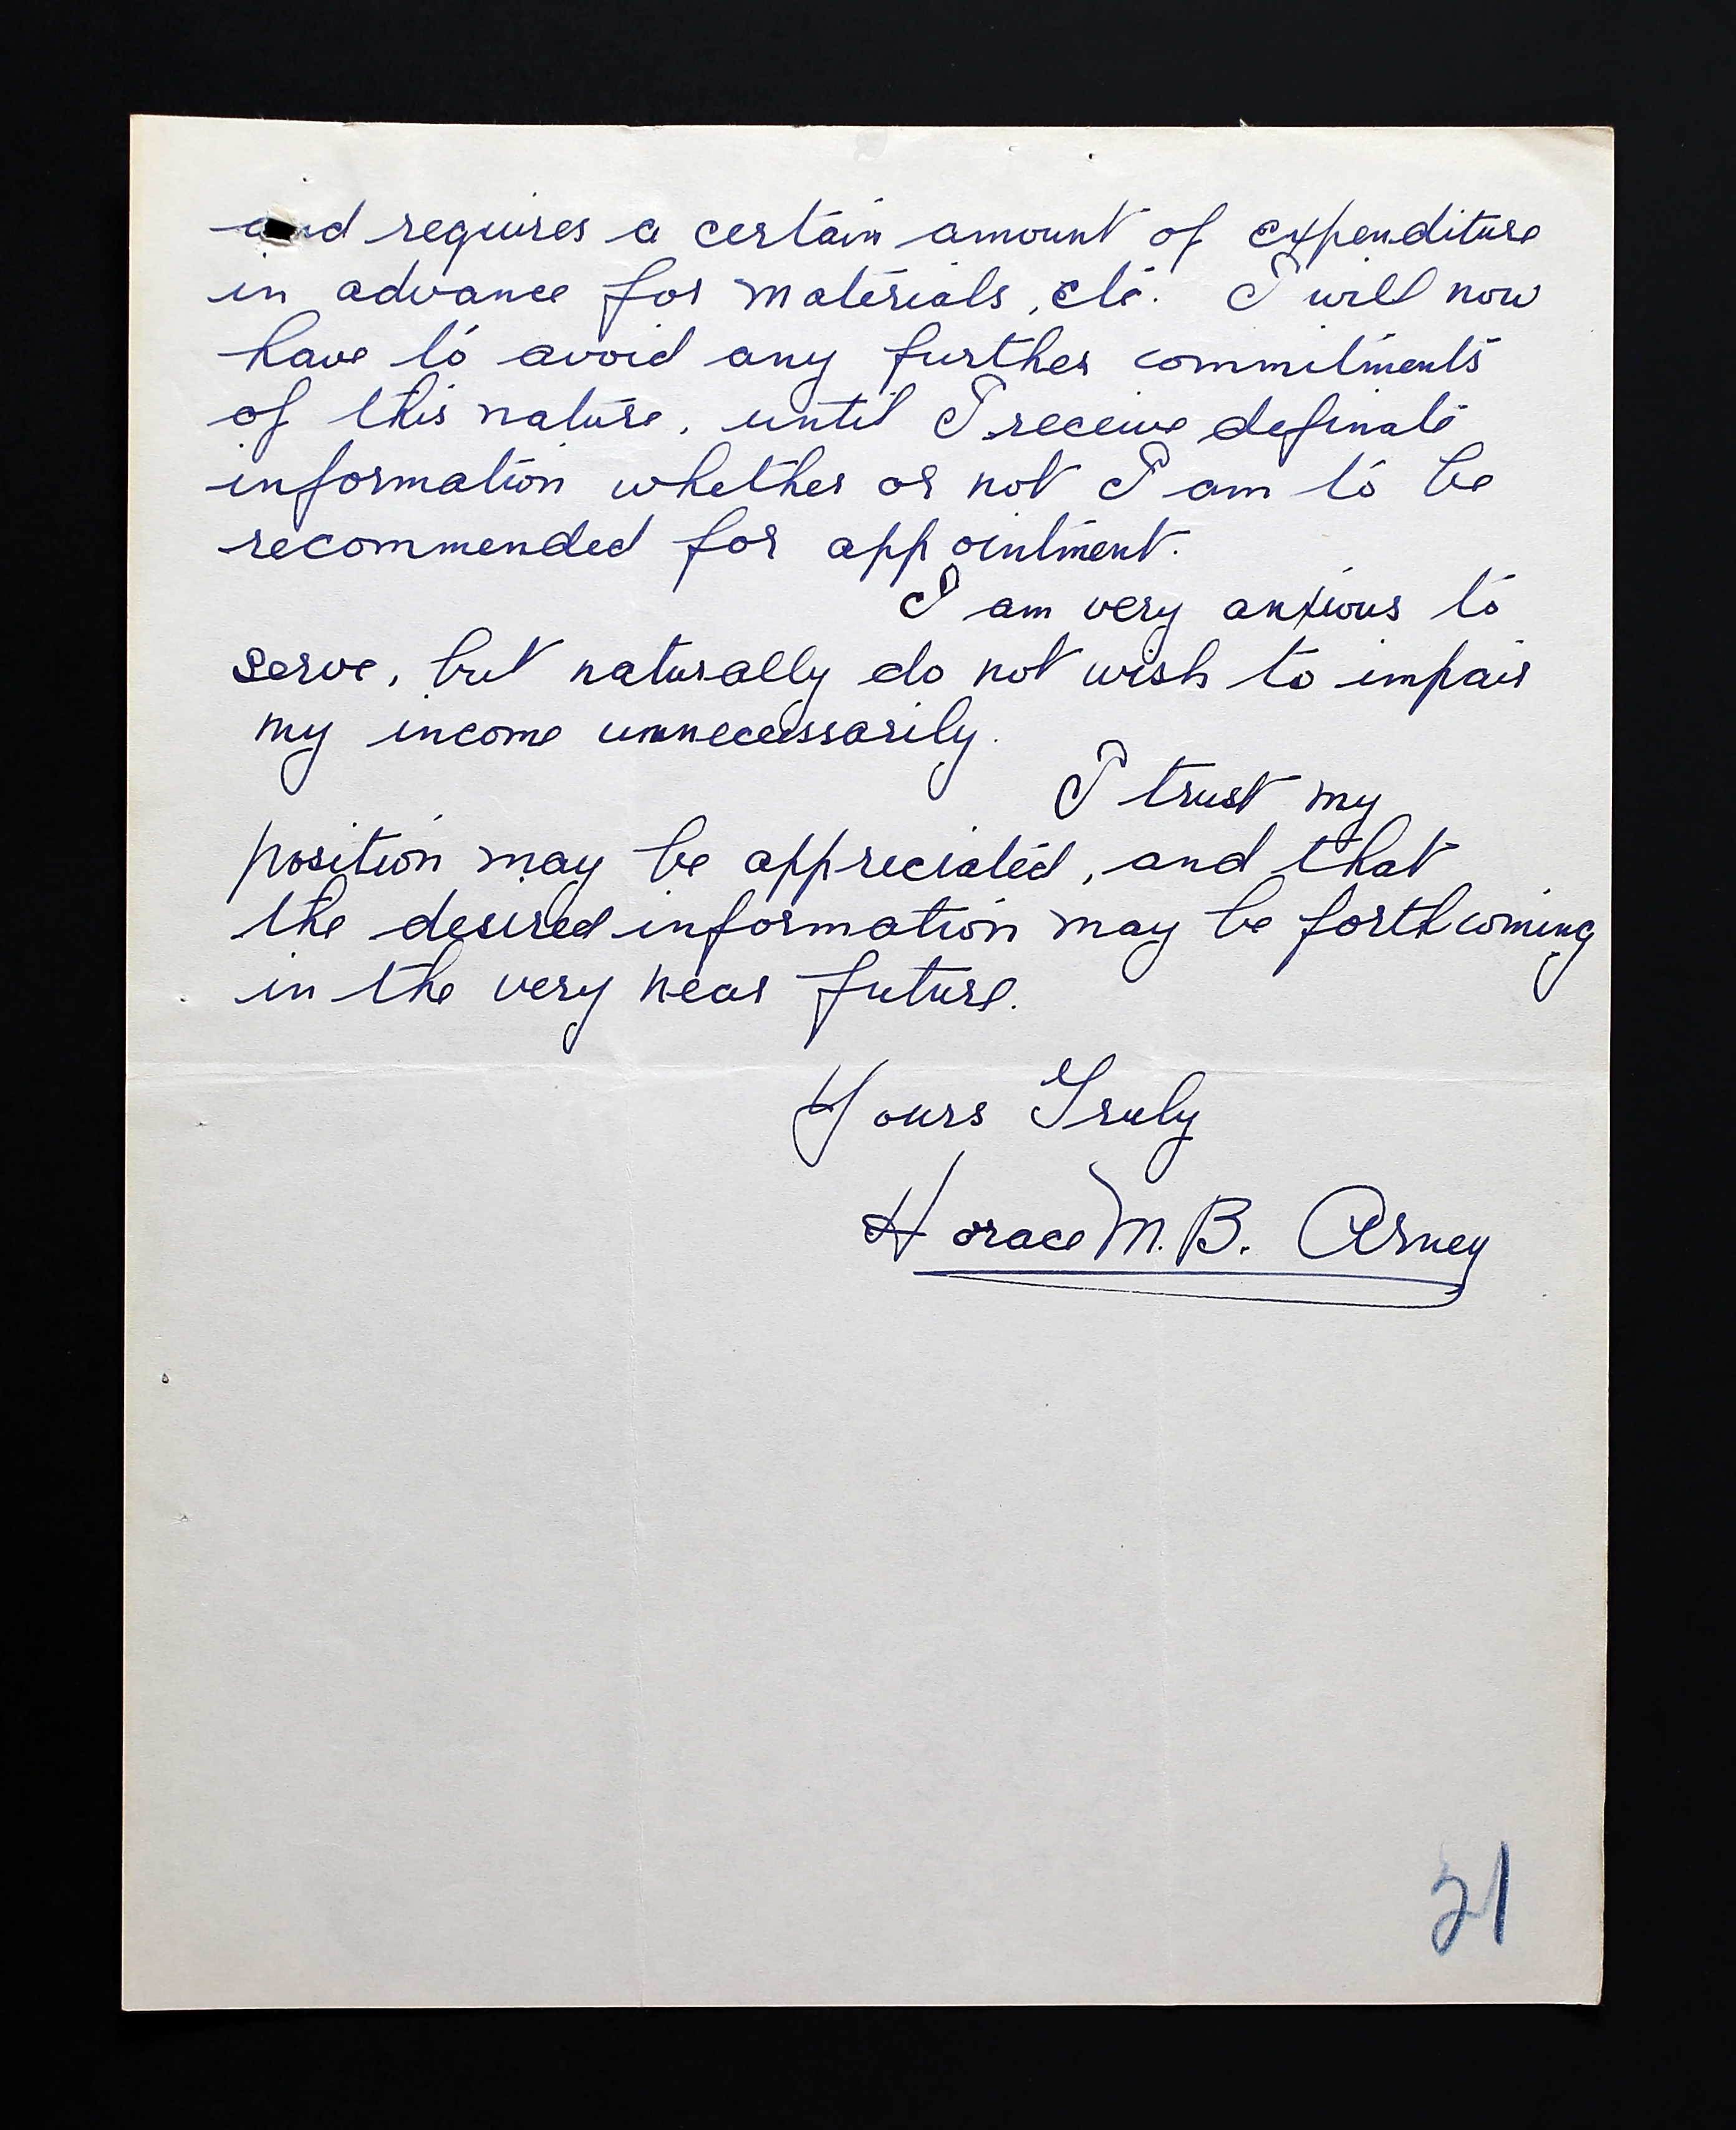 and requires a certain amount of expenditure
in advance for materials, etc. I will now
have to avoid any further commitments
of this nature, until I receive definate
information whether or not I am to be
recommended for appointment.
I am very anxious to
serve, but naturally do not wish to impair
my income unnecessarily.
I trust my
position may be appreciated, and that
the desired information may be forthcoming
in the very near future.
Yours Truly
Horace M. B. Arney
21